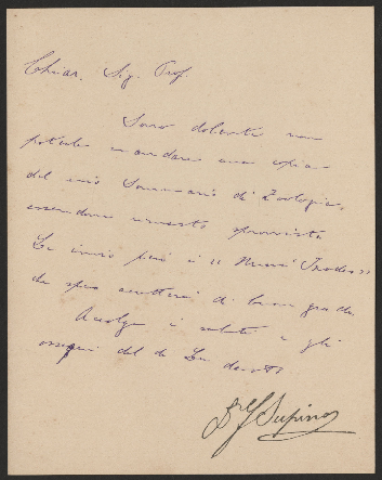 Chiar. Sig. Prof.
Sono dolente non
poterle mandare una copia
del mio Sommario di Zoologia,
essendone rimasto sprovvisto
Le invio però i "Nuovi Ixodes"
che spero accetterà di buon grado.
Accolga i saluti e gli
ossequi del di Lei devot.
Dr F Supino